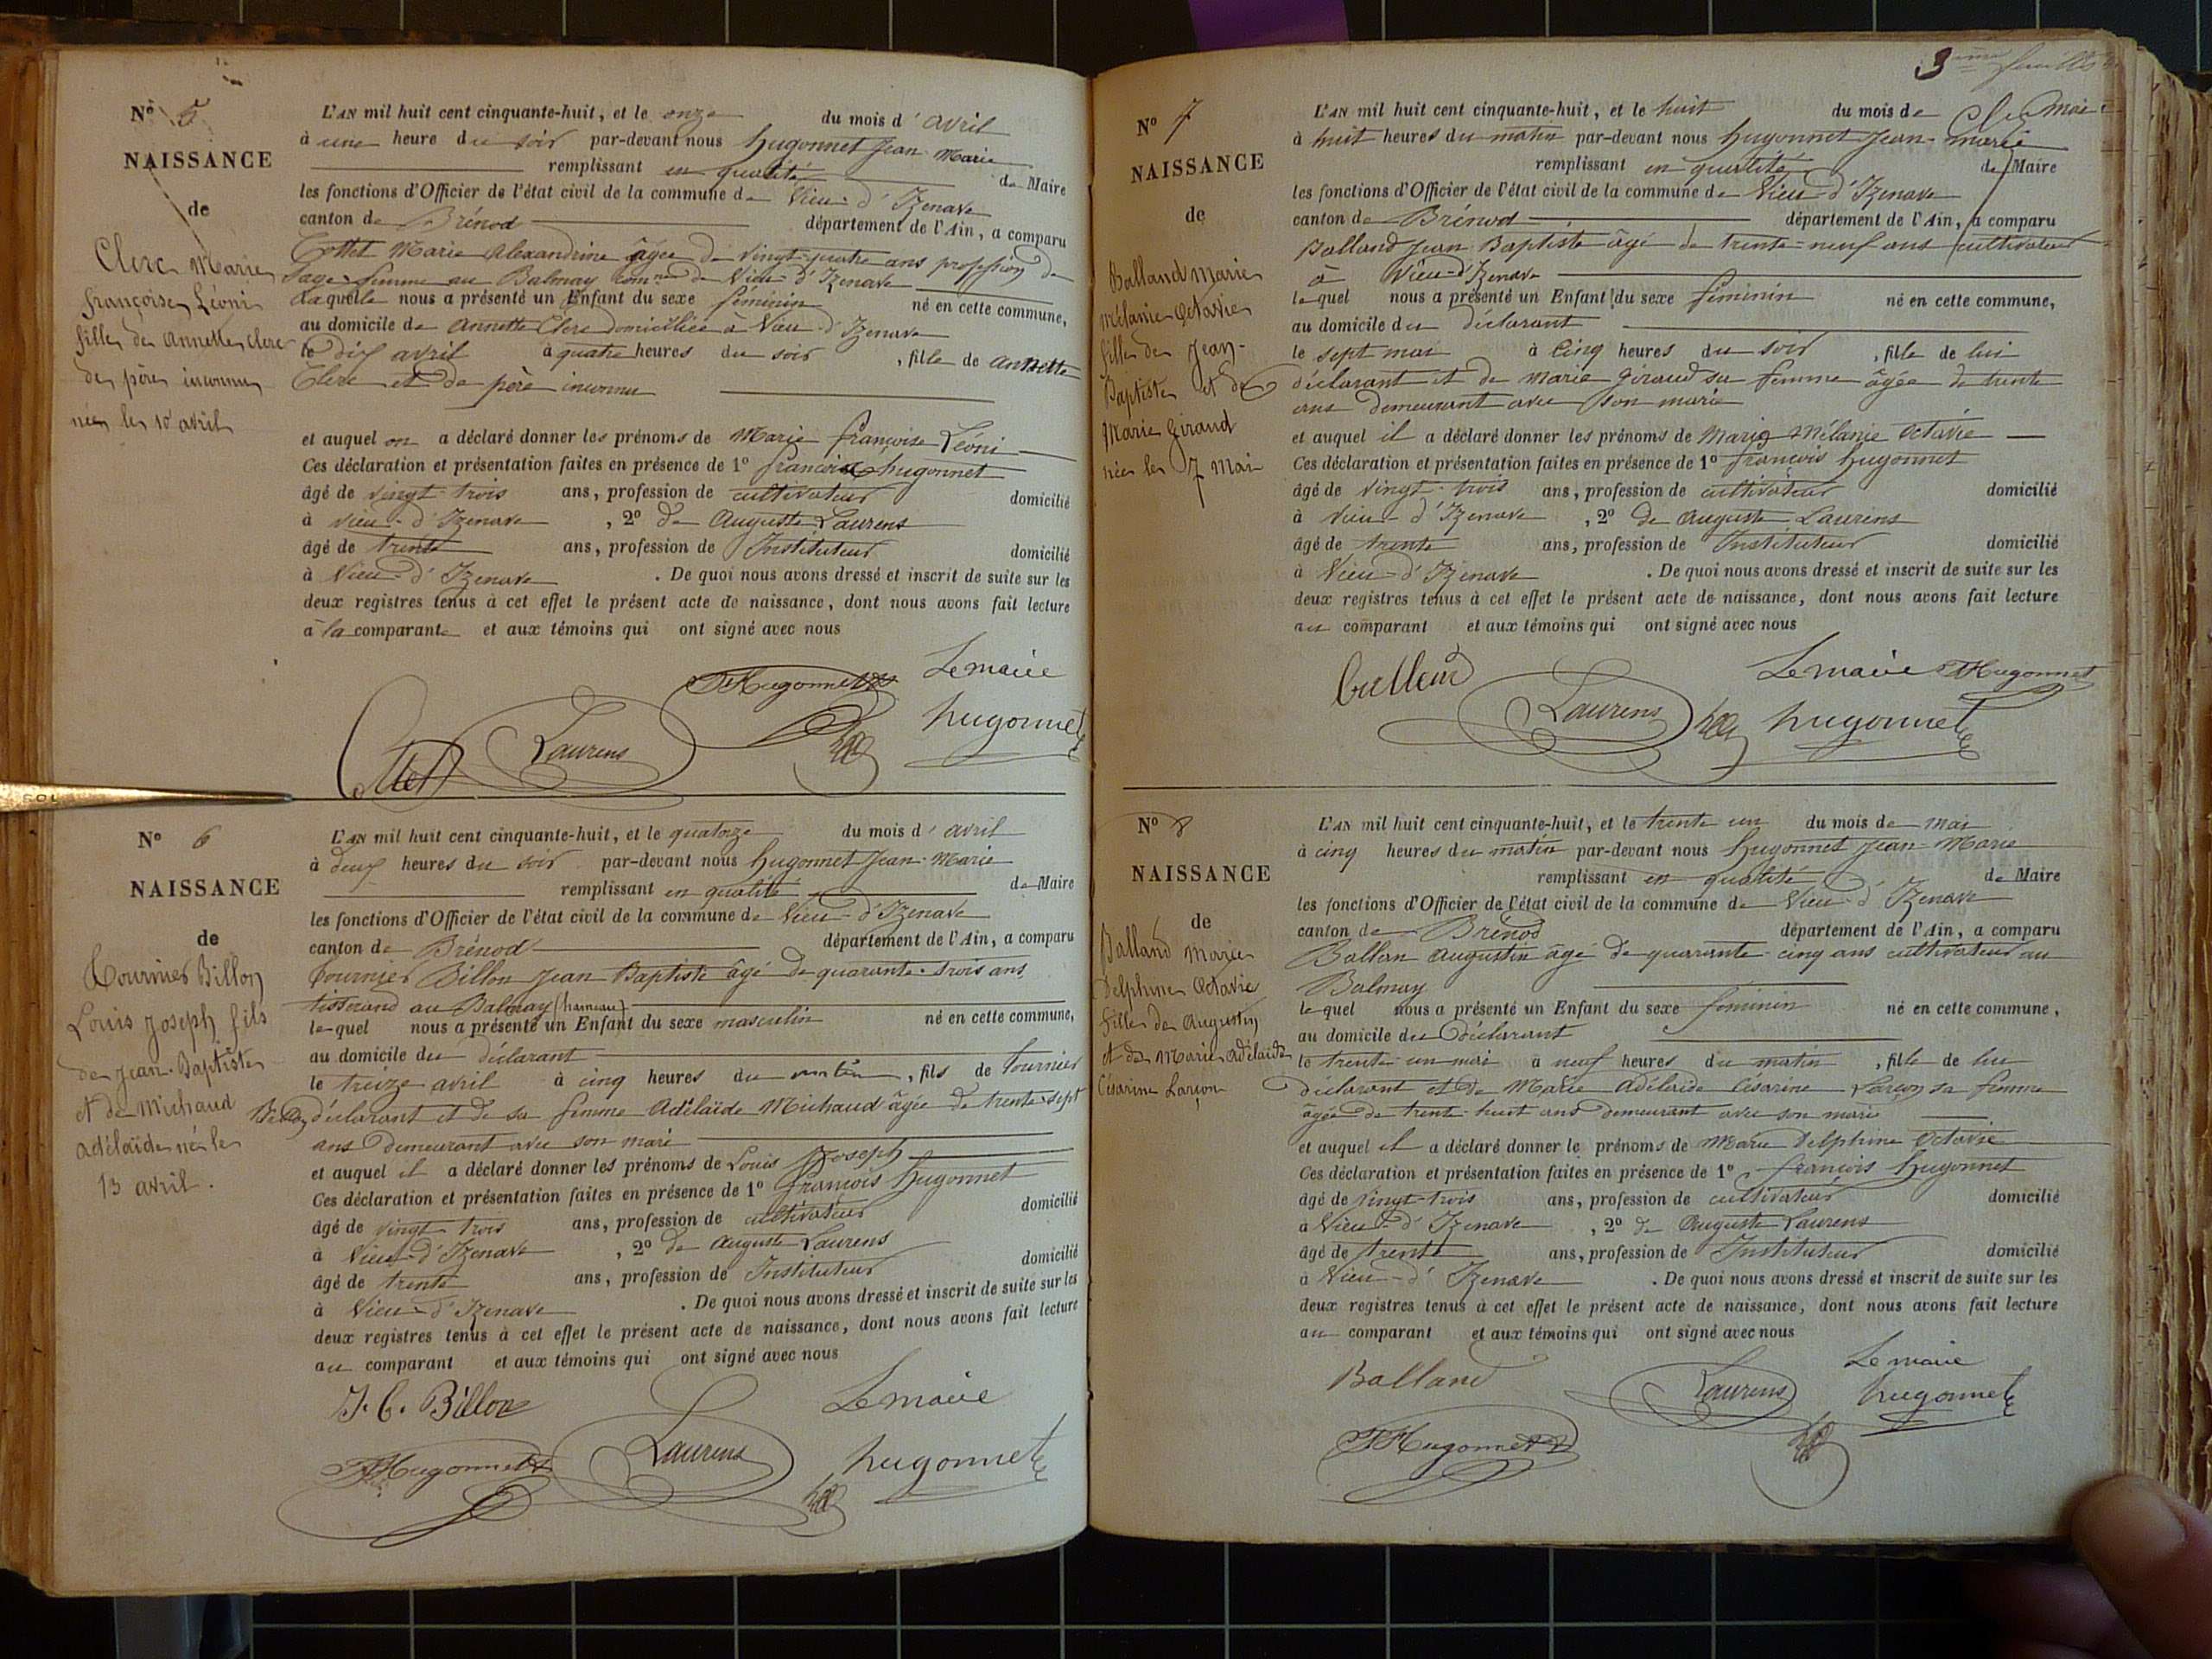 Nº 5
NAISSANCE
de
Clerc Marie
françoise Léoni
fille de Annette Clerc
de père inconnu
née le 10 avril
L'AN mil huit cent cinquante-huit, et le onze du mois d' avril
à une heure du soir par-devant nous hugonnet Jean Marie
remplissant en qualité de Maire
les fonctions d'Officier de l'état civil de la commune de Vieu-d'Izenave
canton de Brénod département de l'Ain, a comparu
Cottet Marie Alexandrine âgée de vingt-quatre ans profession de
Sage-femme au Balmay com.ne de Vieu-d'Izenave
Laquelle nous a présenté un Enfant du sexe féminin né en cette commune,
au domicile de Annette Clerc domiciliée à Vieu-d'Izenave
le dix avril à quatre heures du soir, fille de Annette
Clerc et de père inconnu
et auquel on a déclaré donner les prénoms de Marie françoise Léoni
Ces déclaration et présentation faites en présence de 1º françois hugonnet
âgé de vingt-trois ans, profession de cultivateur domicilié
à Vieu-d'Izenave, 2º de Auguste Laurens
âgé de trente ans, profession de Instituteur domicilié
à Vieu-d'Izenave. De quoi nous avons dressé et inscrit de suite sur les
deux registres tenus à cet effet le présent acte de naissance, dont nous avons fait lecture
à la comparante et aux témoins qui ont signé avec nous
Le maire
FHugonnet
hugonnet
Laurens
Cottet
Nº 6
NAISSANCE
de
Tournier Billon
Louis Joseph fils
de Jean-Baptiste
et de Michaud
Adélaïde né le
13 avril.
L'AN mil huit cent cinquante-huit, et le quatorze du mois d' avril
à deux heures du soir par-devant nous hugonnet Jean-Marie
remplissant en qualité de Maire
les fonctions d'Officier de l'état civil de la commune de Vieu-d'Izenave
canton de Brénod département de l'Ain, a comparu
Tournier Billon Jean Baptiste âgé de quarante-trois ans
tisserand au Balmay (hameau)
lequel nous a présenté un Enfant du sexe masculin né en cette commune,
au domicile du déclarant
le treize avril à cinq heures du matin, fils de Tournier
Billon déclarant et de sa femme Adélaïde Michaud âgée de trente-sept
ans demeurant avec son mari
et auquel il a déclaré donner les prénoms de Louis Joseph
Ces déclaration et présentation faites en présence de 1º françois hugonnet
âgé de vingt trois ans, profession de cultivateur domicilié
à Vieu-d'Izenave, 2º de Auguste Laurens
âgé de trente ans, profession de Instituteur domicilié
à Vieu-d'Izenave. De quoi nous avons dressé et inscrit de suite sur les
deux registres tenus à cet effet le présent acte de naissance, dont nous avons fait lecture
au comparant et aux témoins qui ont signé avec nous
J. B. Billon
Le maire
FHugonnet
Laurens
hugonnet
3ème feuillet
Nº 7
NAISSANCE
de
Balland Marie
Mélanie Octavie
fille de Jean-
Baptiste et de
Marie Giraud
née le 7 Mai
L'AN mil huit cent cinquante-huit, et le huit du mois de Mai
à huit heures du matin par-devant nous hugonnet Jean-marie
remplissant en qualité de Maire
les fonctions d'Officier de l'état civil de la commune de Vieu-d'Izenave
canton de Brénod département de l'Ain, a comparu
Balland Jean Baptiste âgé de trente-neuf ans cultivateur
à Vieu-d'Izenave
lequel nous a présenté un Enfant du sexe féminin né en cette commune,
au domicile du déclarant
le sept mai à Cinq heures du soir, fille de lui
déclarant et de Marie Giraud sa femme âgée de trente
ans demeurant avec son mari
et auquel il a déclaré donner les prénoms de Marie Mélanie Octavie
Ces déclaration et présentation faites en présence de 1º françois hugonnet
âgé de vingt-trois ans, profession de cultivateur domicilié
à Vieu-d'Izenave, 2º de Auguste Laurens
âgé de trente ans, profession de Instituteur domicilié
à Vieu-d'Izenave. De quoi nous avons dressé et inscrit de suite sur les
deux registres tenus à cet effet le présent acte de naissance, dont nous avons fait lecture
au comparant et aux témoins qui ont signé avec nous
Le maire FHugonnet
Laurens
hugonnet
Nº 8
NAISSANCE
de
Balland Marie
Delphine Octavie
fille de Augustin
et de Marie Adélaïde
Césarine Larçon
L'AN mil huit cent cinquante-huit, et le trente un du mois de mai
à cinq heures du matin par-devant nous hugonnet Jean-Marie
remplissant en qualité de Maire
les fonctions d'Officier de l'état civil de la commune de Vieu-d'Izenave
canton de Brénod département de l'Ain, a comparu
Ballan Augustin âgé de quarante-cinq ans cultivateur au
Balmay
lequel nous a présenté un Enfant du sexe féminin né en cette commune,
au domicile du Déclarant
le trente-un mai à neuf heures du matin, fille de lui
déclarant et de Marie Adélaïde Césarine Larçon sa femme
âgée de trente-huit ans demeurant avec son mari
et auquel il a déclaré donner le prénoms de Marie Delphine Octavie
Ces déclaration et présentation faites en présence de 1º françois hugonnet
âgé de vingt-trois ans, profession de cultivateur domicilié
à Vieu-d'Izenave, 2º de Auguste Laurens
âgé de trente ans, profession de Instituteur domicilié
à Vieu-d'Izenave. De quoi nous avons dressé et inscrit de suite sur les
deux registres tenus à cet effet le présent acte de naissance, dont nous avons fait lecture
au comparant et aux témoins qui ont signé avec nous
Le maire
Balland
Laurens
hugonnet
FHugonnet